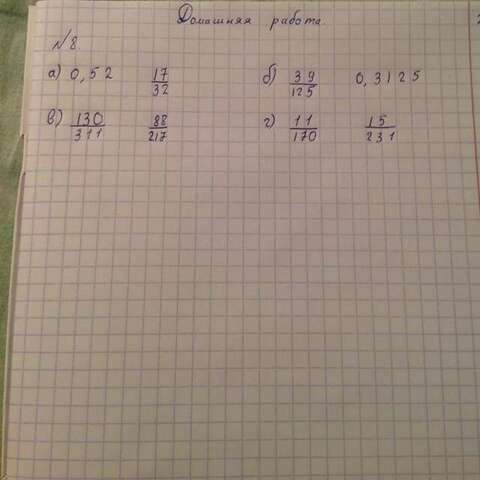 Домашняя работа.
№8.
а) 0,52 17/32 б) 39/125 0,3125
в) 130/311 88/217 г) 11/170 15/231